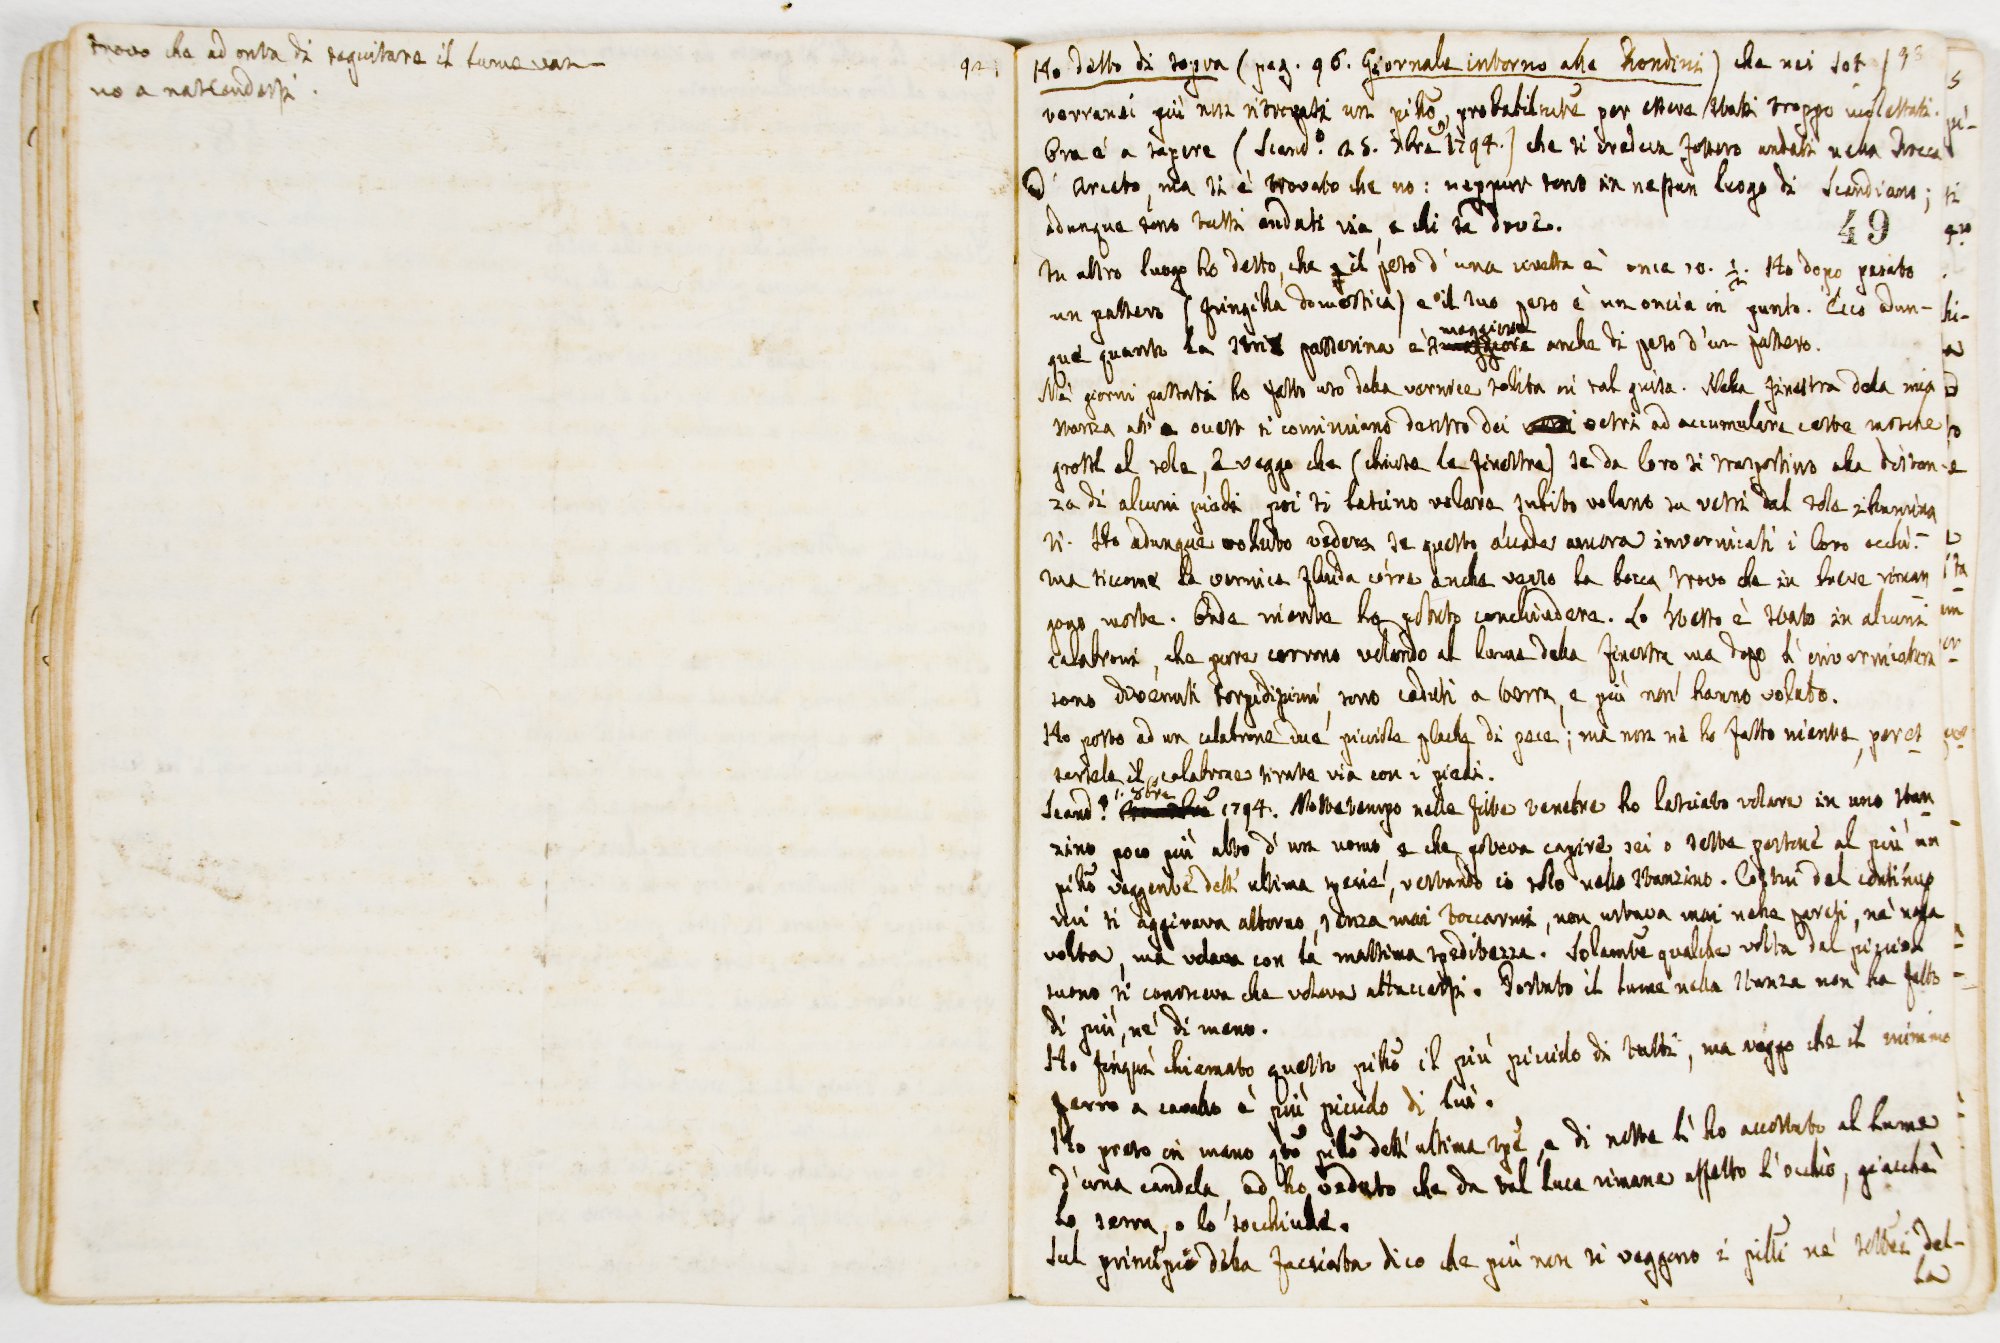 trovo che ad onta di seguitare il lume van-
no a nascondersi.
92.
Ho detto di sopra (pag. 96. Giornale intorno alle Rondini) che nei sot 93
verranei più non ritrovasi un pillõ, probabilmẽte per essere stati troppo molestati.
Ora è a sapere (Scand.º 25. 7bre 1794.) che si credeva fossero andati nella Rocca
d' Arceto, ma si è trovato che no: neppur sono in nessun luogo di Scandiano;
adunque sono tutti andati via, e chi sa dove.
49
In altro luogo ho detto, che il peso d' una civetta è oncie 10. 1/2. Ho dopo pesato
un passero (fringilla domestica) e il suo peso è un oncia in punto. Ecco adun-
que quanto la Strix passerina è maggiore anche di peso d'un passero.
Nei giorni passati ho fatto uso della vernice solita in tal guisa. Nella finestra dela mia
stanza all' e ovest si cominciano dentro dei vetri ad accumulare certe mosche
grosse al sole, e veggo che (chiuse le finestre) se da loro si trasportino alla distan-
za di alcuni piedi poi si lascino volare subito volano su vetri dal sole illumina
ti. Ho adunque voluto vedere se questo accade ancora invernicati i loro occhi.
ma siccome la vernice fluida corre anche verso la bocca, trovo che in breve riman
gono morte. Onde niente ho potuto conchiudere. Lo stesso è stato in alcuni
calabroni, che pure corrono volando al lume della finestra ma dopo l' invernicatura
sono divenuti torpidissimi, sono caduti a terra, e più non hanno volato.
Ho posto ad un calabrone due picciole placche di pece; ma non ne ho fatto niente, per es
sersele il calabrone tirate via con i piedi.
Scand.º 1. 8bre 1794. Nottetempo nelle fitte tenebre ho lasciato volare in uno stan
zino poco più alto d' un uomo e che poteva capire sei o sette persone al più un
pillõ veggente dell' ultima specie, restando io solo nello stanzino. Costui del continuo
ivi si aggirava attorno, senza mai toccarmi, non urtava mai nelle pareti, nè nella
volta, ma volava con la massima speditezza. Solamẽte qualche volta dal picciol
suono si conosceva che voleva attaccarsi. Portato il lume nella stanza non ha fatto
di più, nè di meno.
Ho finquì chiamato questo pillõ il più picciolo di tutti, ma veggo che il minimo
ferro a cavallo è più picciolo di lui.
Ho preso in mano q̃to pillõ dell' ultima spẽ, e di notte l' ho accostato al lume
d'una candela, ed ho veduto che da tal luce rimane affetto l'occhio, giacchè
lo serra, o lo socchiude.
Sul principio della facciata dico che più non si veggono i pillĩ nè sotto del-
la